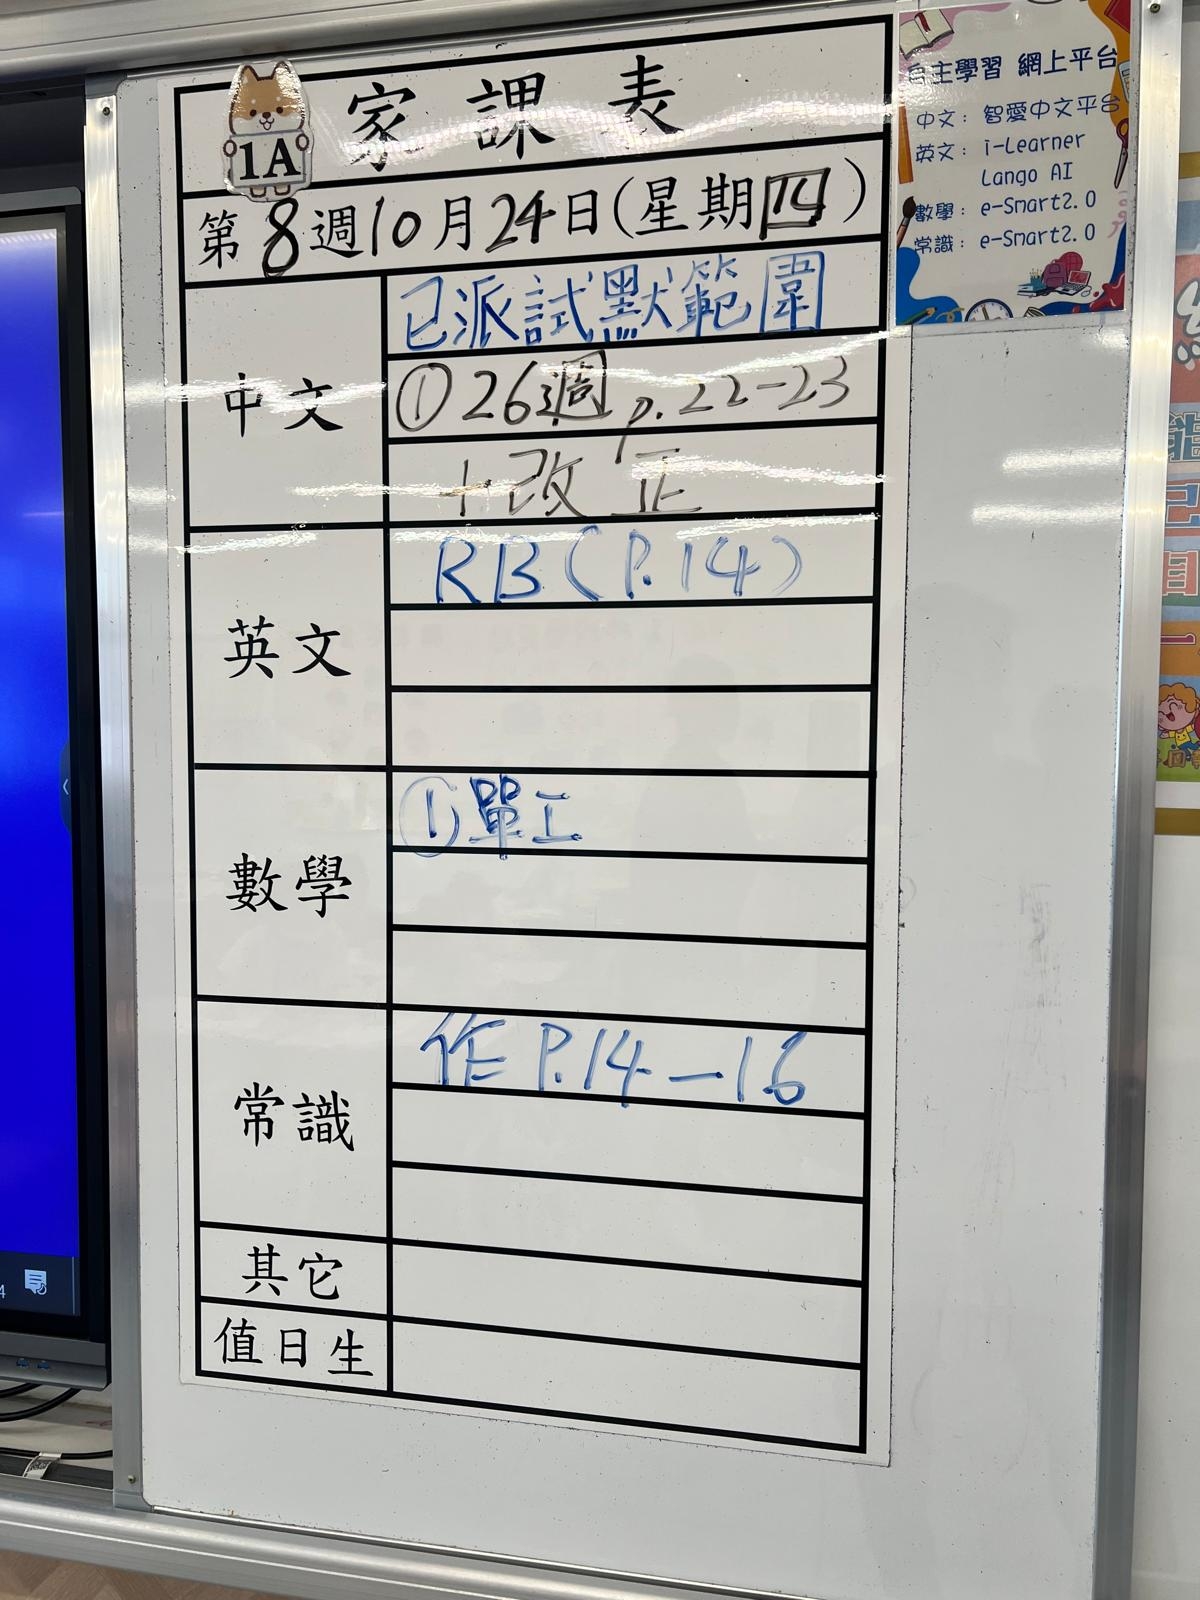 1A
家課表
第8週10月24日(星期四)
中文
已派試默範圍
①26週 p.22-23
+改正
英文
RB(P.14)
數學
①單工
常識
作 P.14-16
其它
值日生
自主學習 網上平台
中文: 智愛中文平台
英文: i-Learner
Lango AI
數學: e-Smart2.0
常識: e-Smart2.0